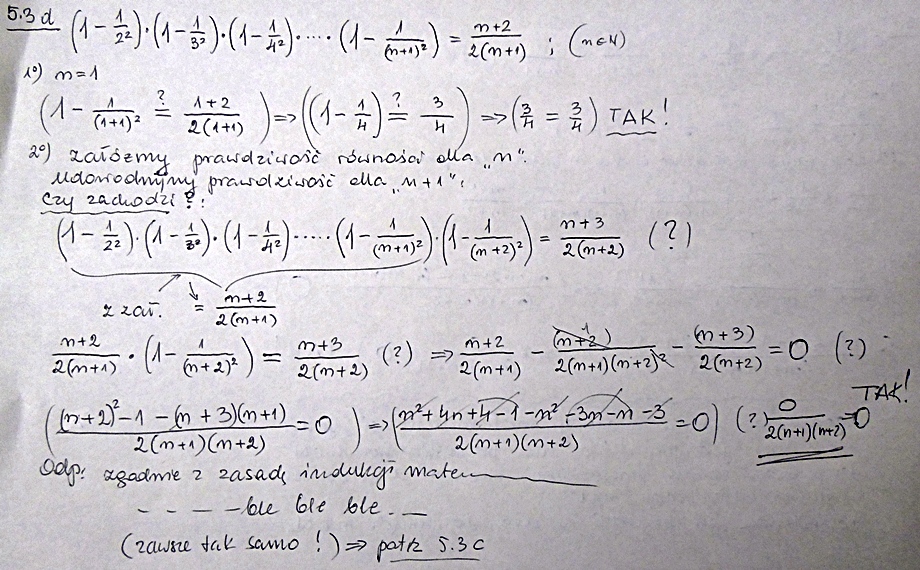 5.3 d (1 - 1/2²)·(1 - 1/3²)·(1 - 1/4²)·.....(1 - 1/(n+1)²) = (n+2)/(2(n+1)) ; (n∈N)
1°) n=1
(1 - 1/(1+1)² ?= (1+2)/(2(1+1))) => ((1 - 1/4) ?= 3/4) => (3/4 = 3/4) TAK!
2°) załóżmy prawdziwość równości dla „n".
Udowodnijmy prawdziwość dla „n+1":
Czy zachodzi?:
(1 - 1/2²)·(1 - 1/3²)·(1 - 1/4²)·.....(1 - 1/(n+1)²)·(1 - 1/(n+2)²) = (n+3)/(2(n+2)) (?)
z zał. = (n+2)/(2(n+1))
(n+2)/(2(n+1)) · (1 - 1/(n+2)²) = (n+3)/(2(n+2)) (?) => (n+2)/(2(n+1)) - (n+2)/(2(n+1)(n+2)²) - (n+3)/(2(n+2)) = 0 (?)
(((n+2)² - 1 - (n+3)(n+1))/(2(n+1)(n+2)) = 0) => ((n² + 4n + 4 - 1 - n² - 3n - n - 3)/(2(n+1)(n+2)) = 0) (?) 0/(2(n+1)(n+2)) = 0 TAK!
Odp: zgodnie z zasadą indukcji matem
- - - - ble ble ble. —
(zawsze tak samo!) => patrz 5.3 c